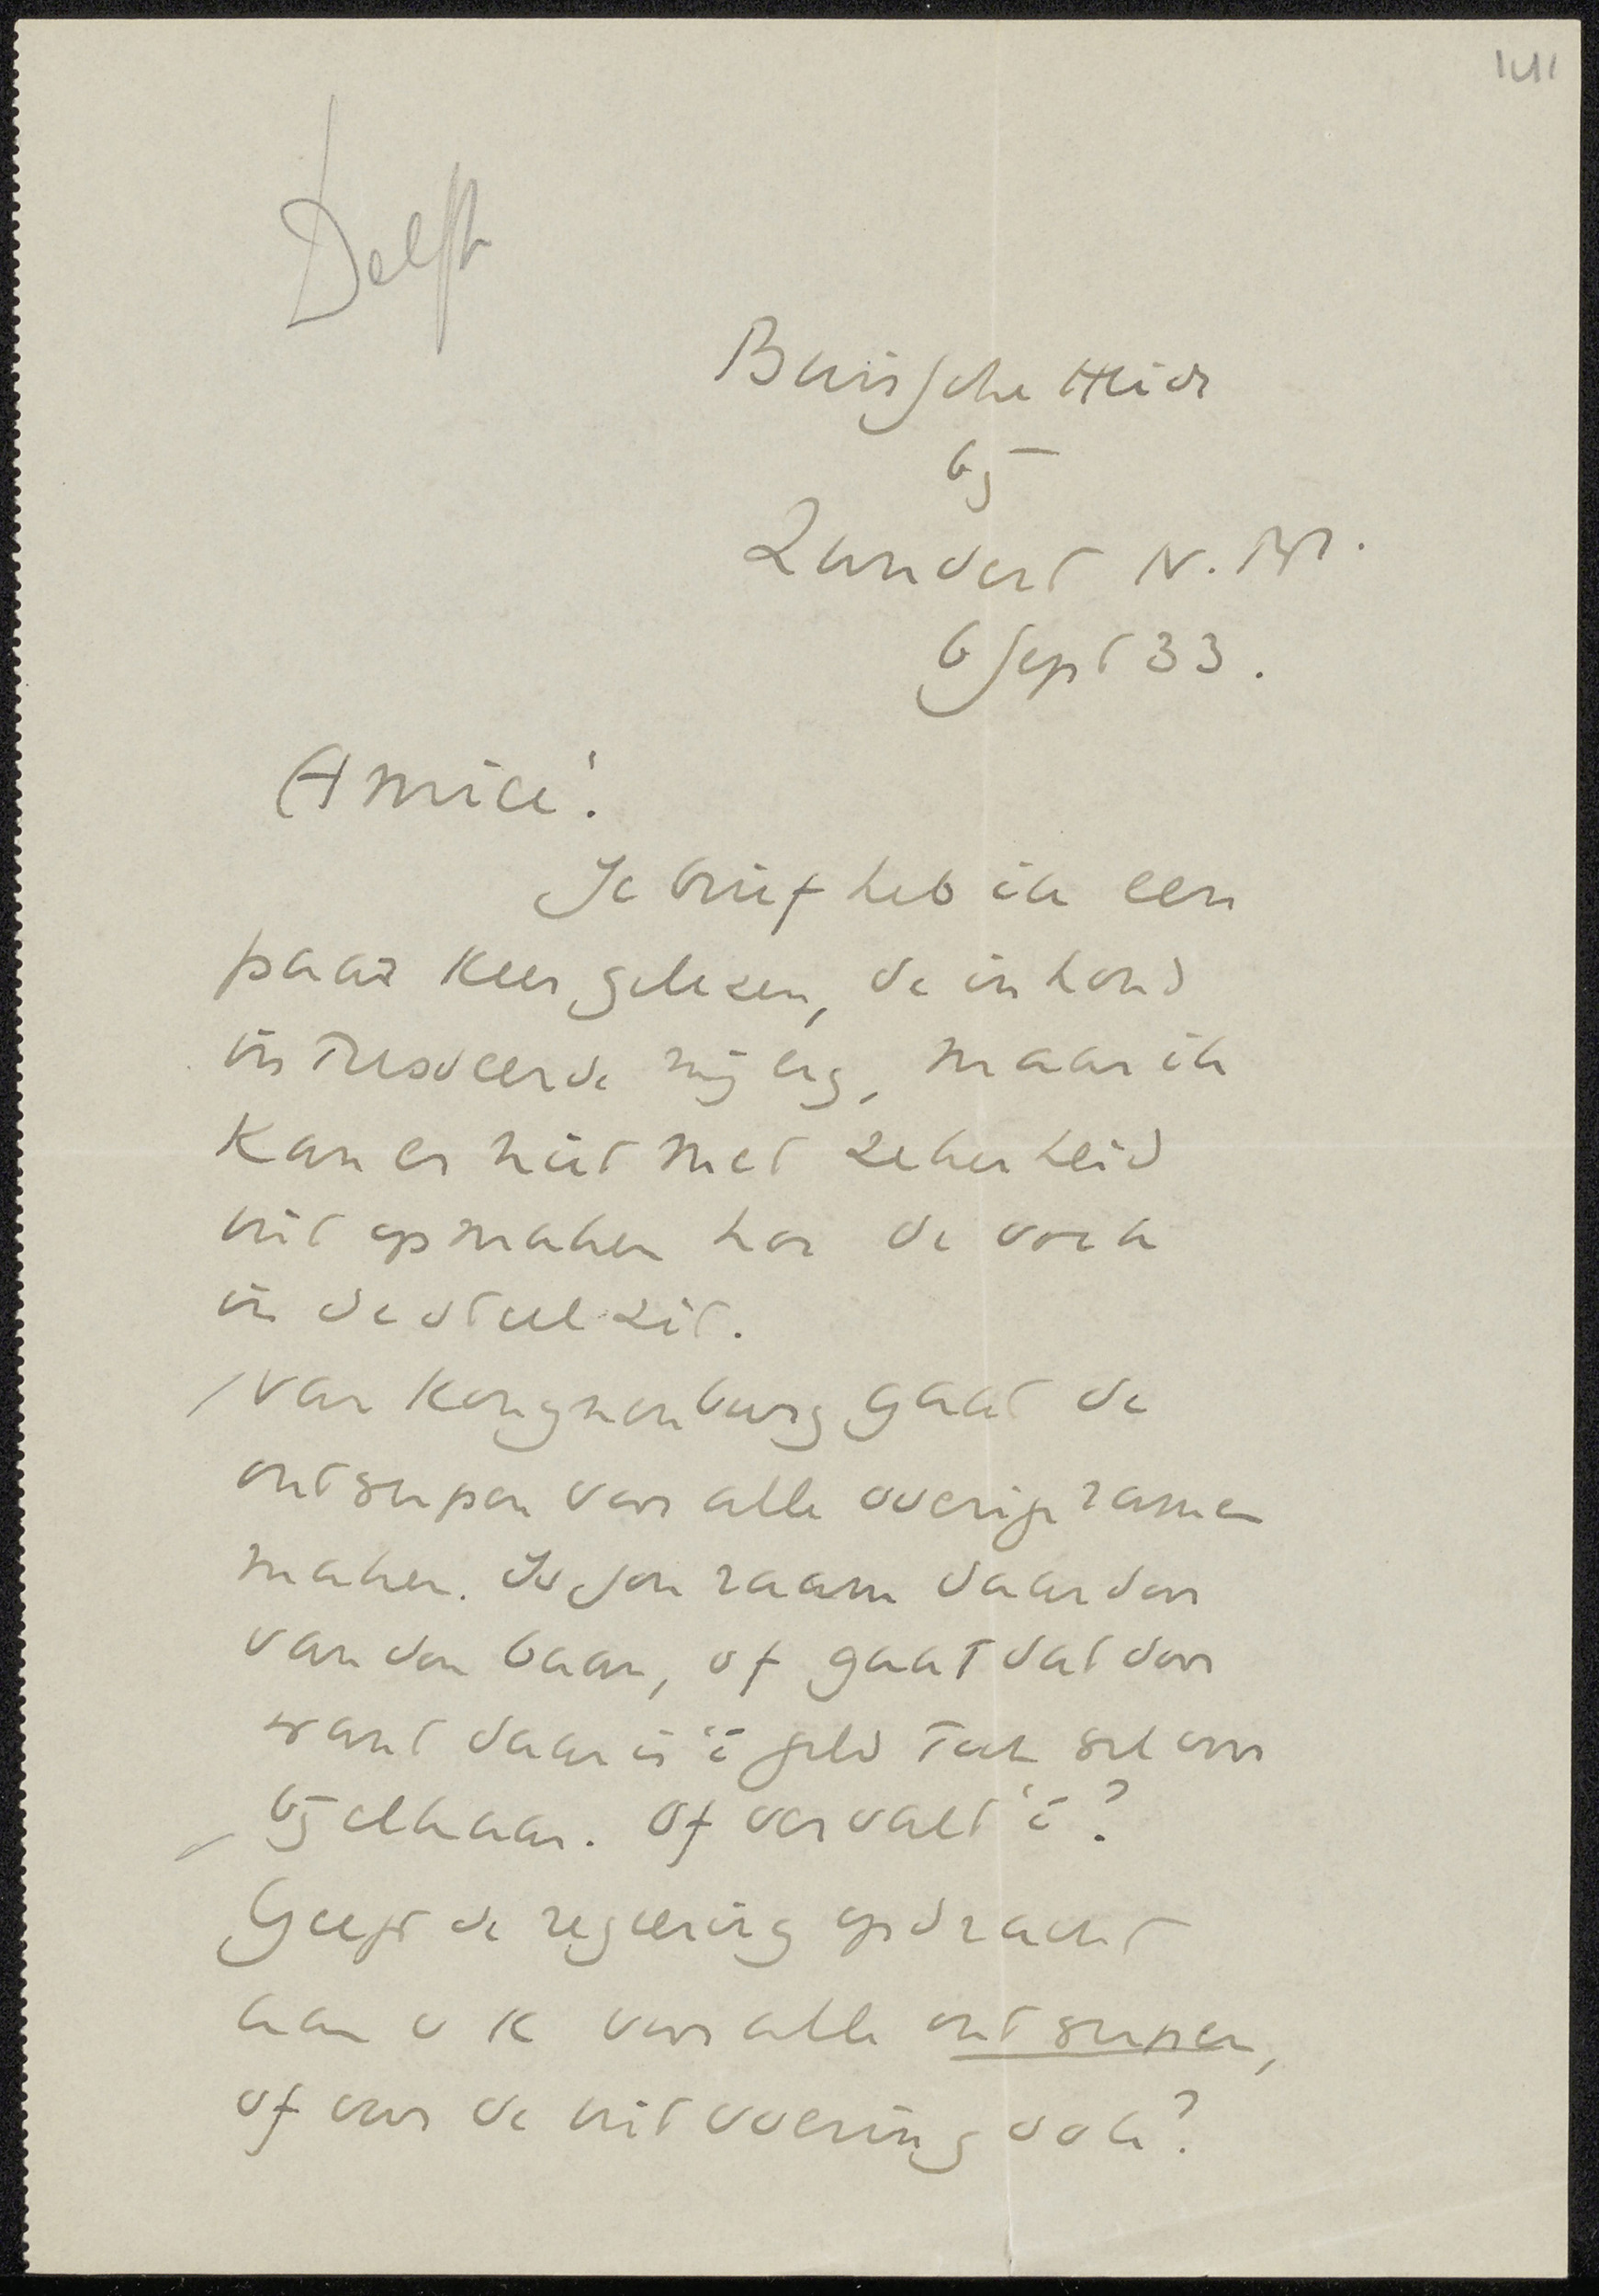 141
Delft
Buissche Heide
bij
Zundert N. Br.
6 Sept 33.
Amice!
Je brief heb ik een
paar keer gelezen, de inhoud
intresseerde mij erg, maar ik
kan er niet met zekerheid
uit opmaken hoe de vork
in de steel zit.
Van Konynenburg gaat de
ontwerpen voor alle overige ramen
maken. Is jou raam daardoor
van den baan, of gaat dat door
want daar is 't geld toch al voor
bij elkaar. Of vervalt 't?
Geeft de regeering opdracht
aan v K voor alle ontwerpen,
of voor de uitvoering ook?